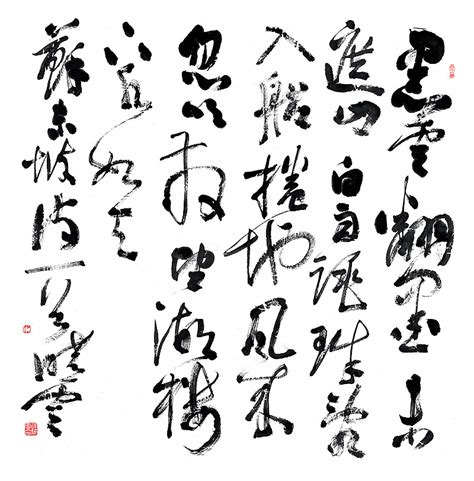 黑雲翻墨未
遮山白雨跳珠亂
入船捲地風來
忽吹散望湖樓
下水如天
蘇東坡詩一首